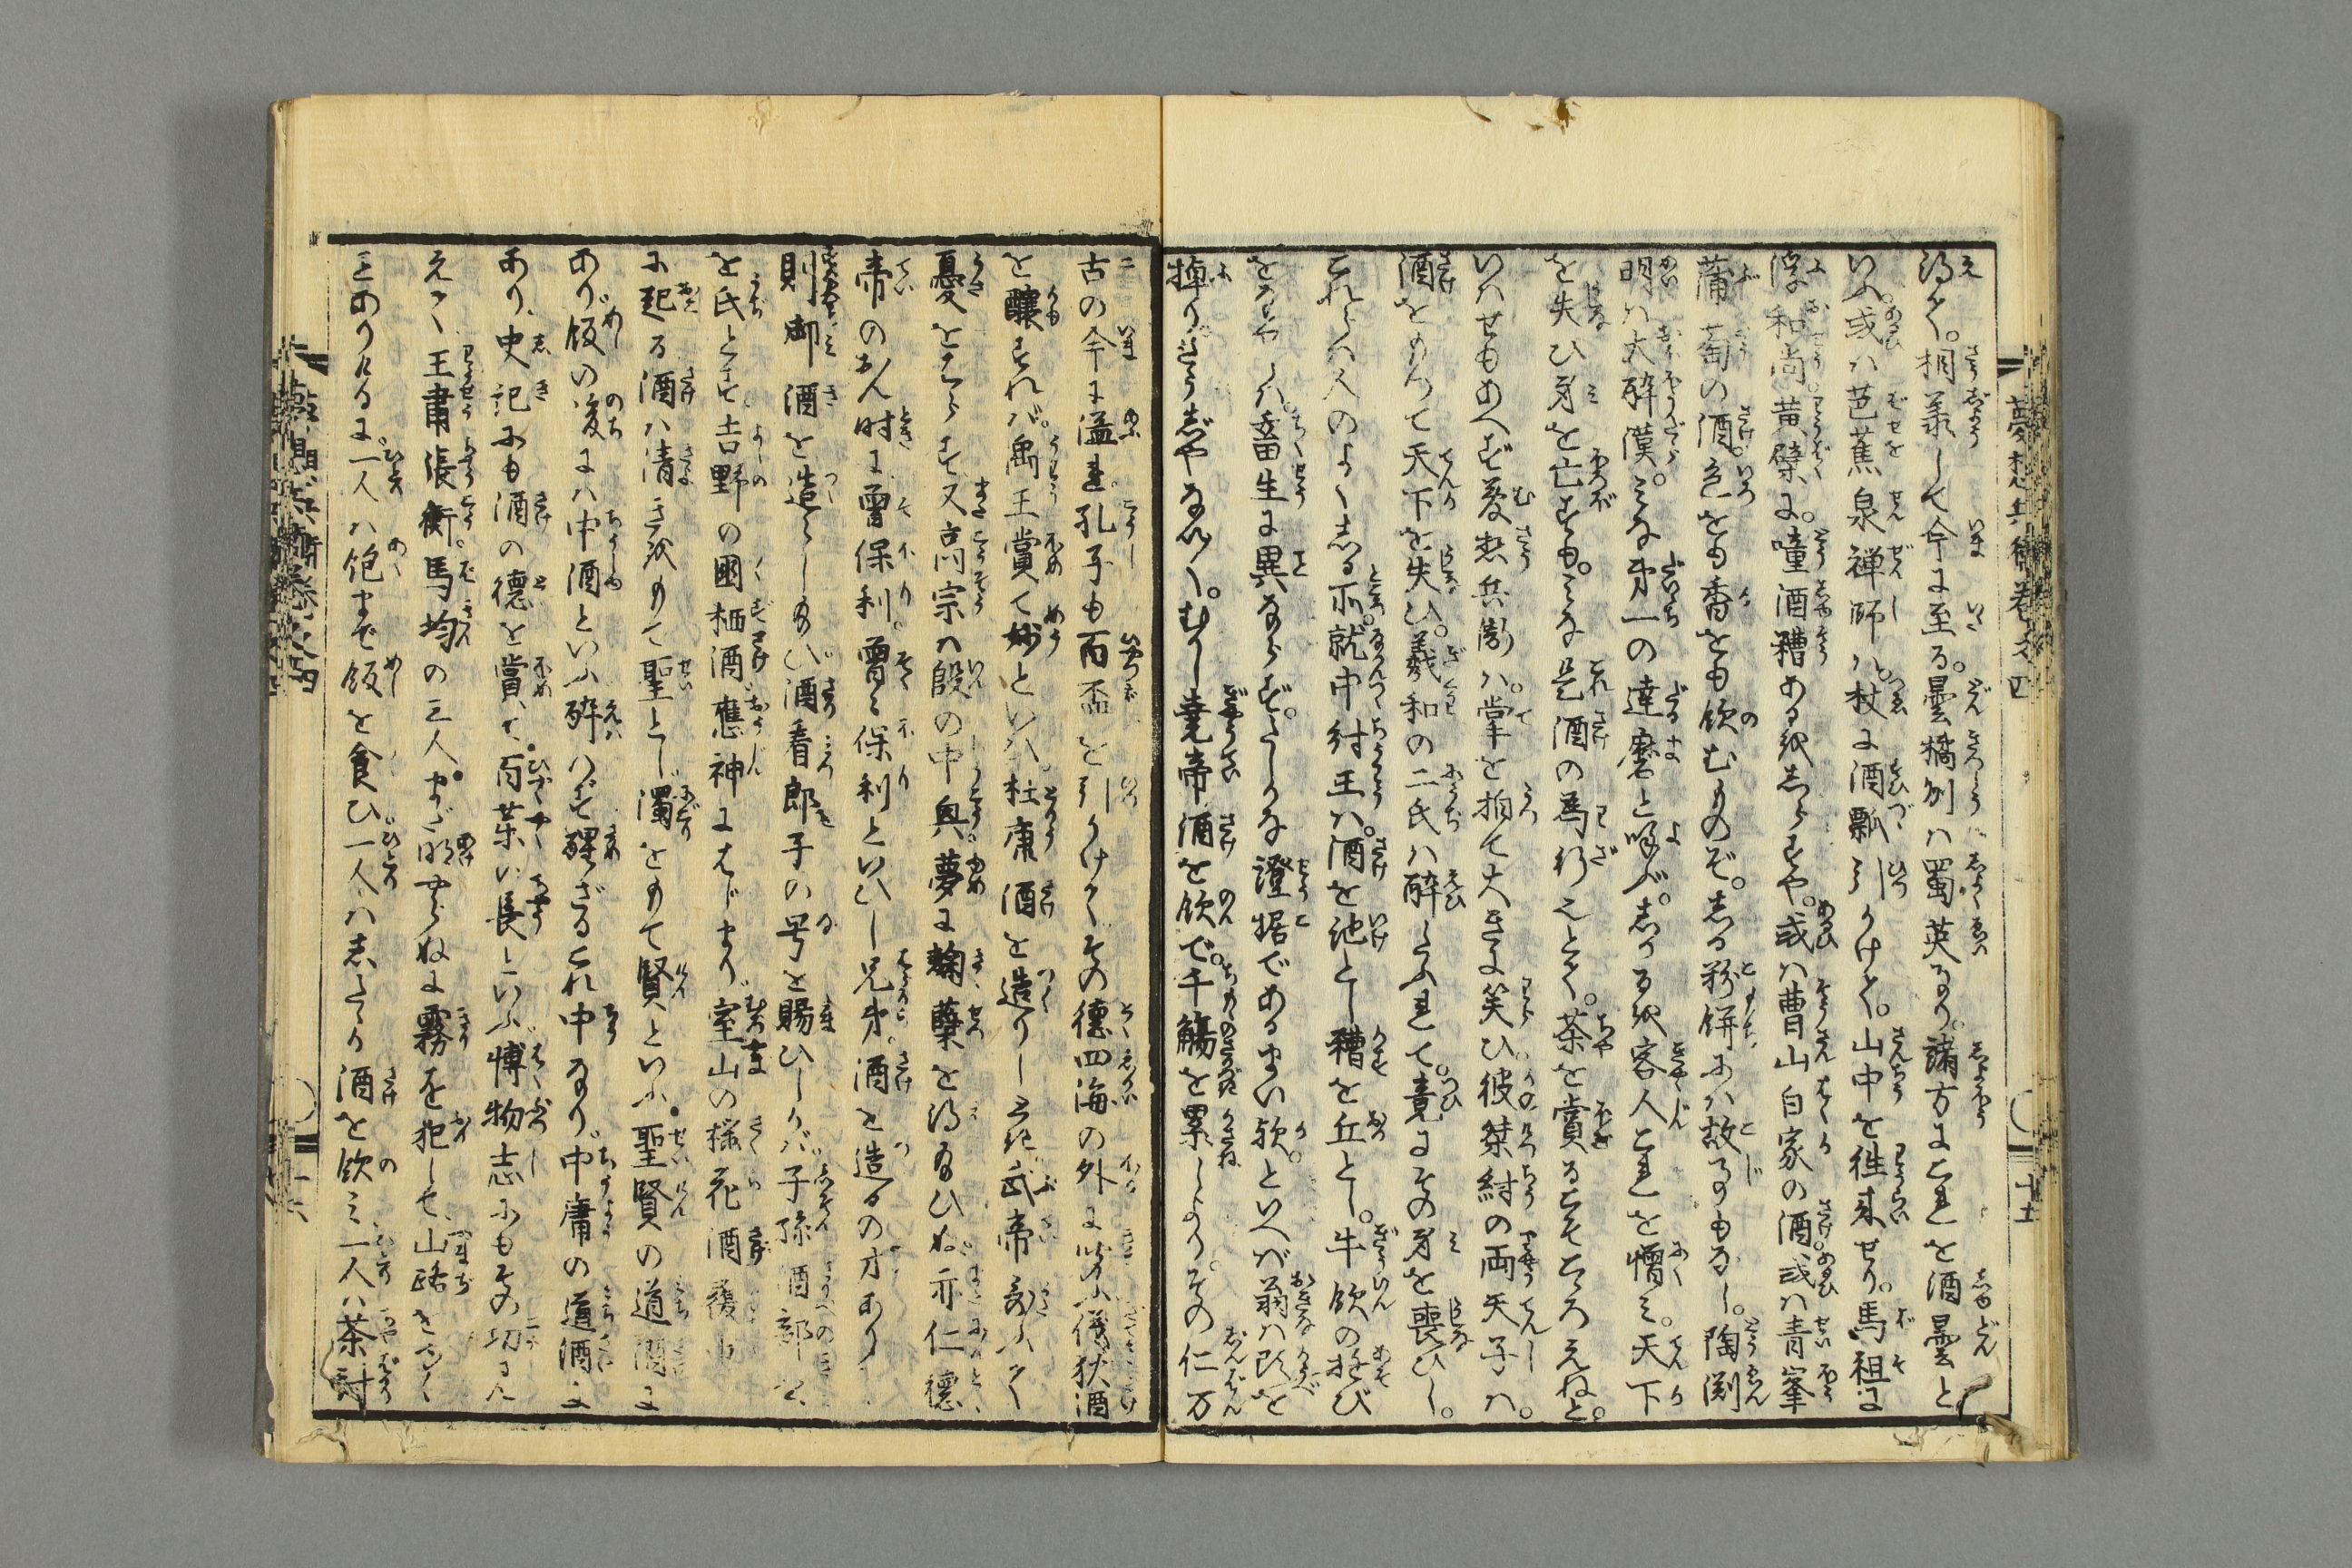 夢想兵衛巻之四
得て。相承して今に至る。曇橘州は蜀英なり。諸方にこれを酒曇と
いふ。或は芭蕉泉禅師は。杖に酒瓢引かけて。山中を徃来せり。馬祖に
浮和尚。黄檗に。噇酒糟ある状しらずや。或は曹山白家の酒。或は青峯
蒲萄の酒。色をも香をも飲むものぞ。しる粉餅には故事もなし。陶渕
明は大酔漢。みな第一の達磨と呼ぶ。しかるを客人これを憎み。天下
を失ひ身を亡すも。みな是酒の為行えとて。茶を賞ることこころえねと。
いはせもあへず夢想兵衛は。掌を拍て大きに笑ひ。彼桀紂の両天子は。
酒をもつて天下を失ひ。羲和の二氏は酔たふれて。竟にその身を喪ひし。
これらは人のよくしる所。就中紂王は。酒を池とし糟を丘とし。牛飲の遊び
をせしは。畜生に異ならず。たしかな證据であるまい歟。といへば翁は頭を
掉り。さうじやない〱。むかし堯帝酒を飲で。千觴を累しより。その仁万
古の今に溢れ。孔子も百盃を引かけて。その徳四海の外に聞ふ。儀狄酒
を醸すれば。禹王賞て妙といへば。杜康酒を造りしを。武帝
憂をわすらす。又高宗は殷の中興。夢に麹蘖を得給ひぬ。亦仁徳
帝のおん時に。曽保利。曽々保利といひし兄弟。酒を造るの才あり。
則御酒を造らしめ。酒看郎子の号を賜ひしかば。子孫酒部を
を氏とす。吉野の國栖酒。應神にはじまり。室山の桜花酒。履中
に起る。酒は清き状もて聖とし。濁をもて賢といふ。聖賢の道酒に
あり。飯の後には中酒といふ。酔はず醒ざるこれ中なり。中庸の道酒に
あり。史記にも酒の徳を賞て。百薬の長といふ。博物志にもその功は
えて。王肅張衡。馬均の三人。まだ明やらぬに霧を犯して。山路を
とありけるに。一人は飽まで飯を食ひ。一人はしたたか酒を飲み。一人は茶計
夢想兵衛巻之四